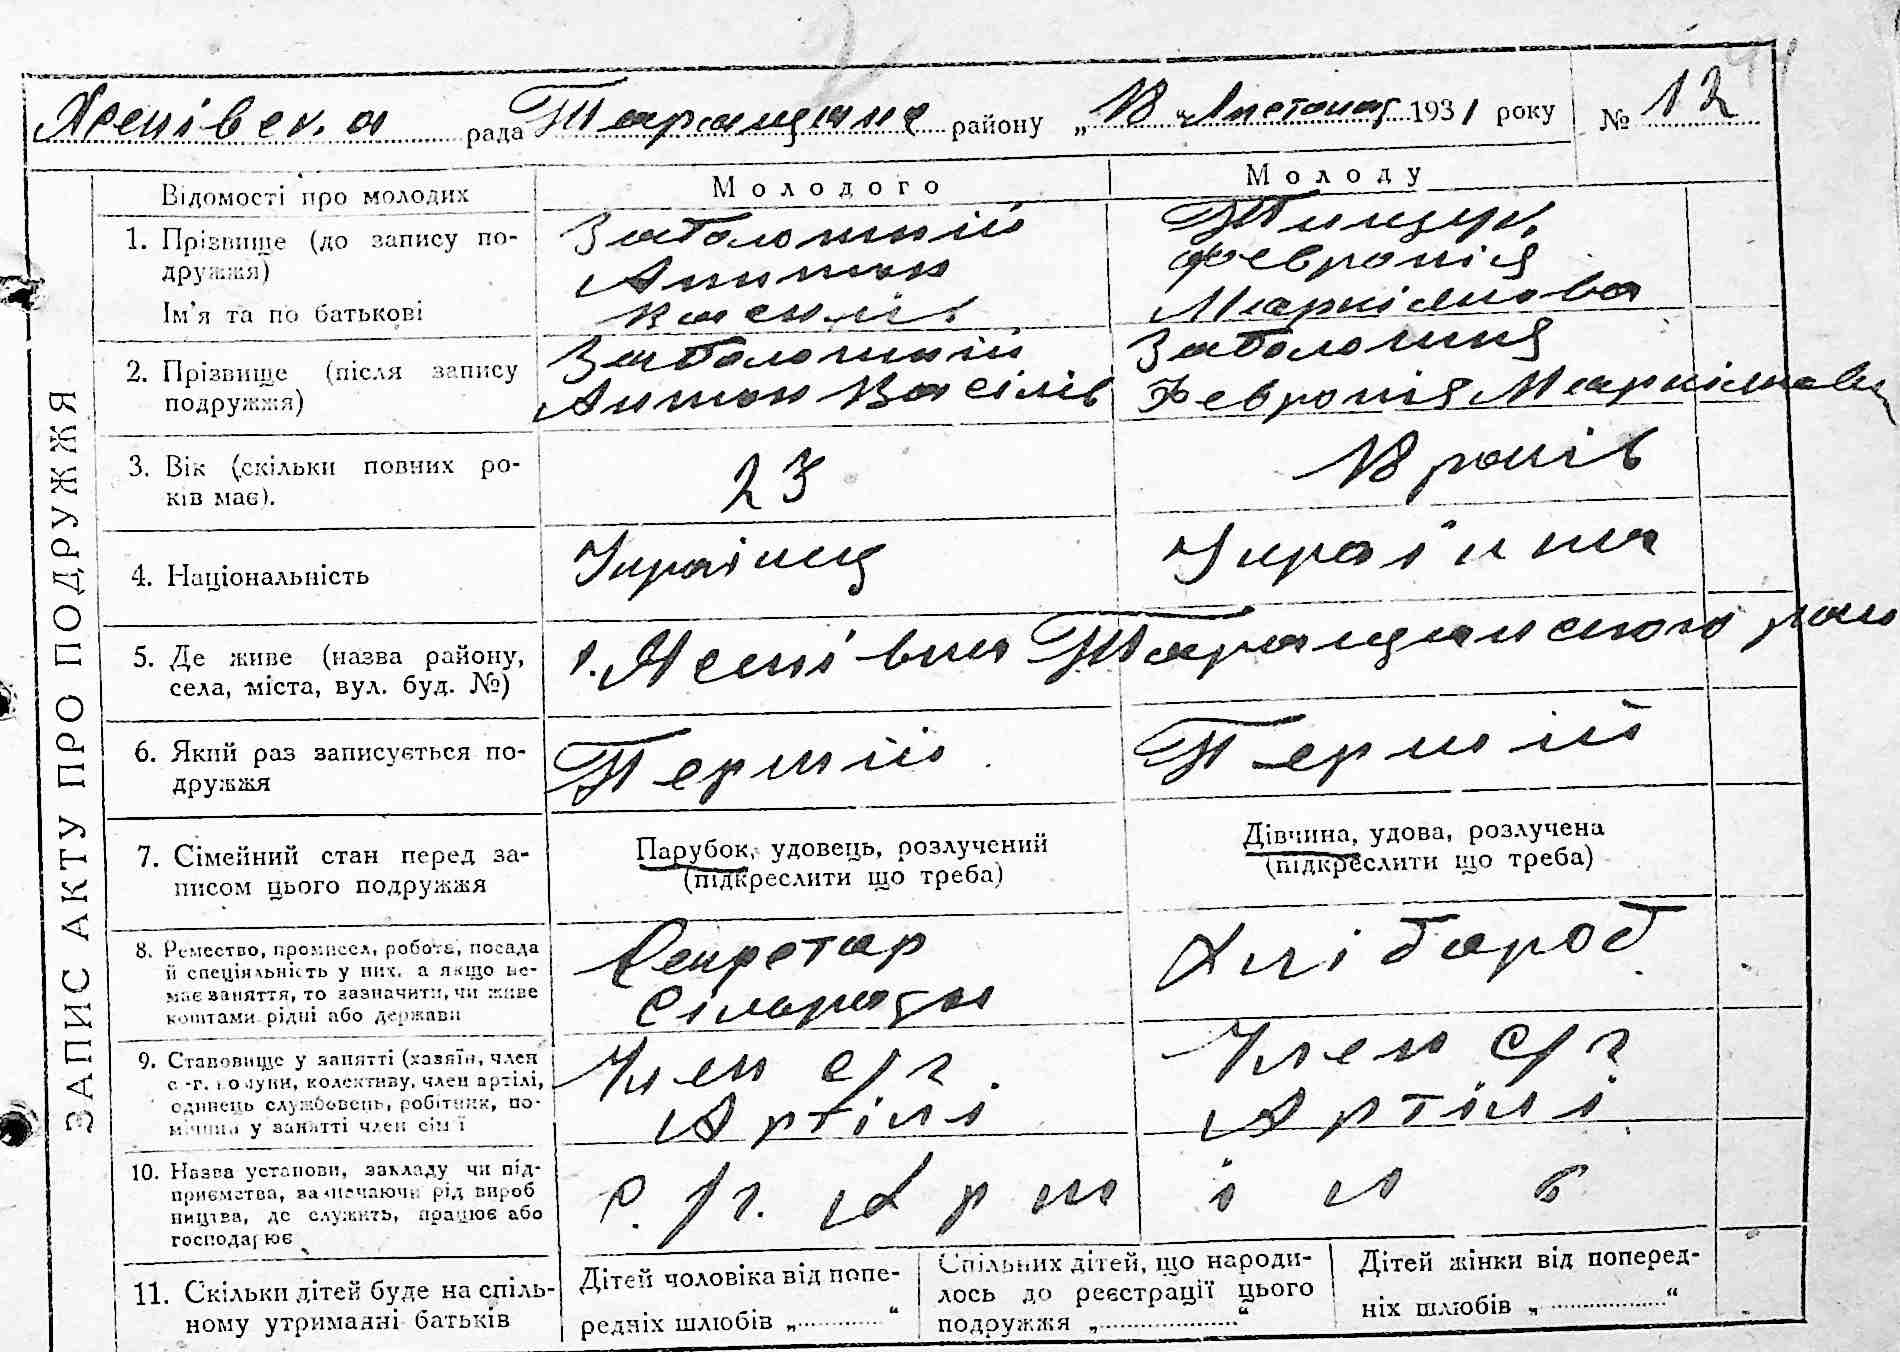 Ясенівська рада Таращанс району „18“ Листопад 1931 року № 12
ЗАПИС АКТУ ПРО ПОДРУЖЖЯ
Відомості про молодих
Молодого
Молоду
1. Прізвище (до запису по-
дружжя)
Ім'я та по батькові
Заболотній
Антон
Васил
Тищук
Февронія
Маркіянова
2. Прізвище (після запису
подружжя)
Заболотній
Антон Васілів
Заболотня
Февронія Маркіянова
3. Вік (скільки повних ро-
ків має).
23
18 років
4. Національність
Українц
Україїнка
5. Де живе (назва району,
села, міста, вул. буд. №)
с. Ясенівка Таращанского рай
6. Який раз записується по-
дружжя
Першій
Першій
7. Сімейний стан перед за-
писом цього подружжя
Парубок, удовець, розлучений
(підкреслити що треба)
Дівчина, удова, розлучена
(підкреслити що треба)
8. Ремество, промисел, робота, посада
й спеціяльність у них, а якщо не-
має заняття, то зазначити, чи живе
коштами рідні або держави
Секретар
Сільради
Хлібороб
9. Становище у занятті (хазяїн, член
с.-г. комуни, колективу, член артілі,
одинець службовець, робітник, по-
мічний у занятті член сім'ї
Член с/г.
Артілі
Член с/г
Артілі
10. Назва установи, закладу чи під-
приємства, зазначаючи рід вироб
ництва, де служить, працює або
господарює
с./г. Артіль
11. Скільки дітей буде на спіль-
ному утриманні батьків
Дітей чоловіка від попе-
редніх шлюбів „..........“
Спільних дітей, що народи-
лось до реєстрації цього
подружжя „..........“
Дітей жінки від поперед-
ніх шлюбів „..........“